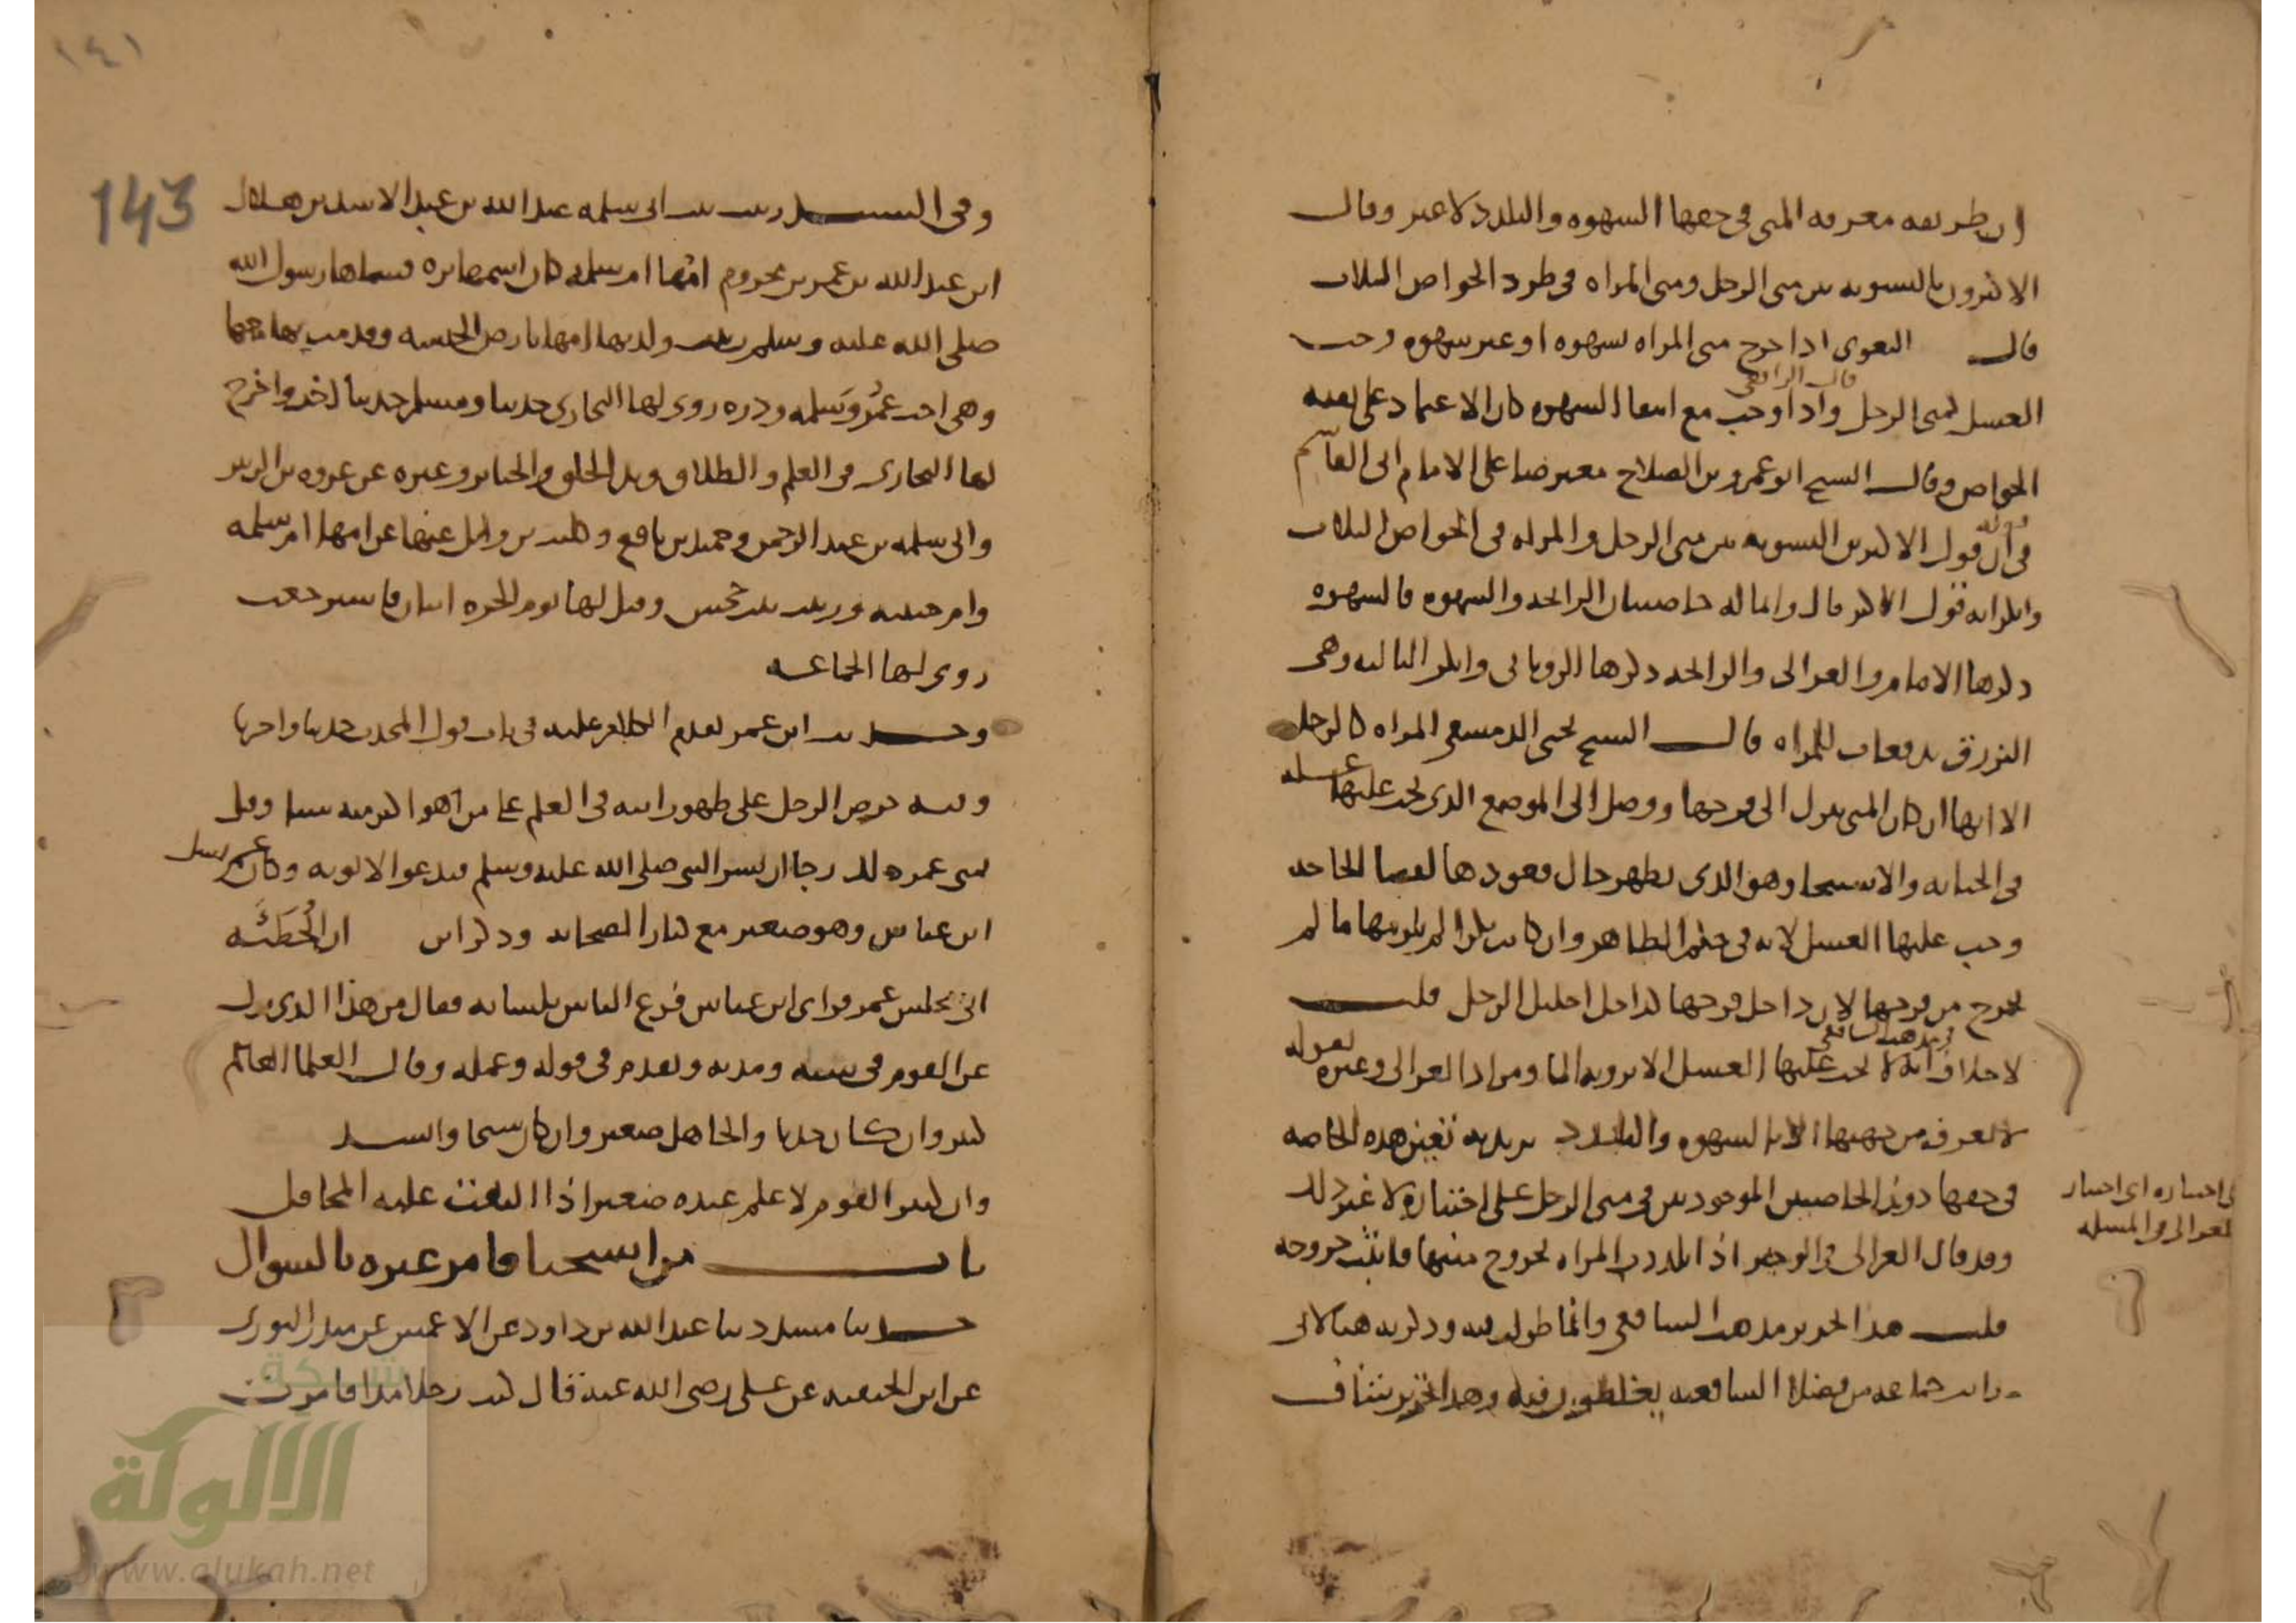 ان طريقه معرفه المنى فى حقها الشهوه والتلذذ لا غير وقال
الاكثرون بالتسويه بين منى الرجل ومنى المراه فى طرد الخواص الثلاث
قال البغوى اذا خرج منى المراه بشهوه او غير شهوه وجب
الغسل كمنى الرجل قال الرافعى واذا وجب مع انتفا الشهوه كان الاعتماد على بقيه
الخواص وقال الشيخ ابو عمرو بن الصلاح معترضا على الامام ابى القاسم
فى ان قول الاكثرين التسويه بين منى الرجل والمراه فى الخواص الثلاث
وانكر انه قول الاكثر قال وانما له خاصيتان الرايحه والشهوه فالشهوه
ذكرها الامام والغزالى والرايحه ذكرها الرويانى وانكر الثالثه وهى
التزرق بدفعات للمراه قال الشيخ يحيى الدمشقى المراه كالرجل
الا انها ان كان المنى ينزل الى فرجها ووصل الى الموضع الذى يجب عليها غسله
فى الجنابه والاستنجا وهو الذى يظهر حال قعودها لقضا الحاجه
وجب عليها الغسل لانه فى حكم الظاهر وان كانت بكرا لم يلزمها ما لم
يخرج من فرجها لان داخل فرجها كداخل احليل الرجل قلت
لا خلاف فى مذهب الشافعى انه لا يجب عليها الغسل الا برويه الما ومراد الغزالى وغيره بقوله
لا يعرف من جهتها الا بالشهوه والتلذذ يريد به تعين هذه الخاصه
فى حقها دون الخاصيتين الموجودتين فى منى الرجل على اختياره لا غير ذلك
فى اختياره اى اختيار
الغزالى والمسله
وقد قال الغزالى فى الوجيز اذا تلذذت المراه لخروج منيها فانثت خروجه
قلت هذا تحرير مذهب الشافعى وانما طولت فيه وذكرته هنا لانى
رايت جماعه من فضلا الشافعيه يغلطون فيه وهذا تحرير شاف
١٤١
143
وفى السند زينب بنت ابى سلمه عبد الله بن عبد الاسد بن هلال
ابن عبد الله بن عمر بن مخزوم امها ام سلمه كان اسمها بره فسماها رسول الله
صلى الله عليه وسلم زينب ولدتها امها بارض الحبشه وقدمت بها معها
وهى اخت عمر وسلمه ودره روى لها البخارى حديثا ومسلم حديثا اخر واخرج
لها البخارى فى العلم والطلاق وبدا الخلق والجنايز وغيره عن عروه بن الزبير
وابى سلمه بن عبد الرحمن وحميد بن نافع وكليب بن وايل عنها عن امها ام سلمه
وام حبيبه وزينب بنت جحش وقتل لها يوم الحره ابنان فاسترجعت
روى لها الجماعه
وحديث ابن عمر تقدم الكلام عليه فى باب قول المحدث حدثنا واخبرنا
وفيه حرص الرجل على ظهور ابنه فى العلم على من هو اكبر منه سنا وقيل
تمنى عمر ذلك رجا ان يسر النبى صلى الله عليه وسلم فيدعو لابنه وكان عمر يسل
ابن عباس وهو صغير مع كبار الصحابه وذكر ابن ان الحطيئه
اتى مجلس عمر فراى ابن عباس فرع الناس بلسانه فقال من هذا الذى نزل
عن القوم فى سنه ومدته وتقدم فى قوله وعمله وقالت العلما العالم
كبير وان كان حدثا والجاهل صغير وان كان شيخا وانشد
وان كبير القوم لا علم عنده صغير اذا التفت عليه المحافل
باب من استحيا فامر غيره بالسوال
حدثنا مسدد ثنا عبد الله بن داود عن الاعمش عن منذر الثورى
عن ابن الحنفيه عن على رضى الله عنه قال كنت رجلا مذا فامرت
شبكة
الألوكة
www.alukah.net